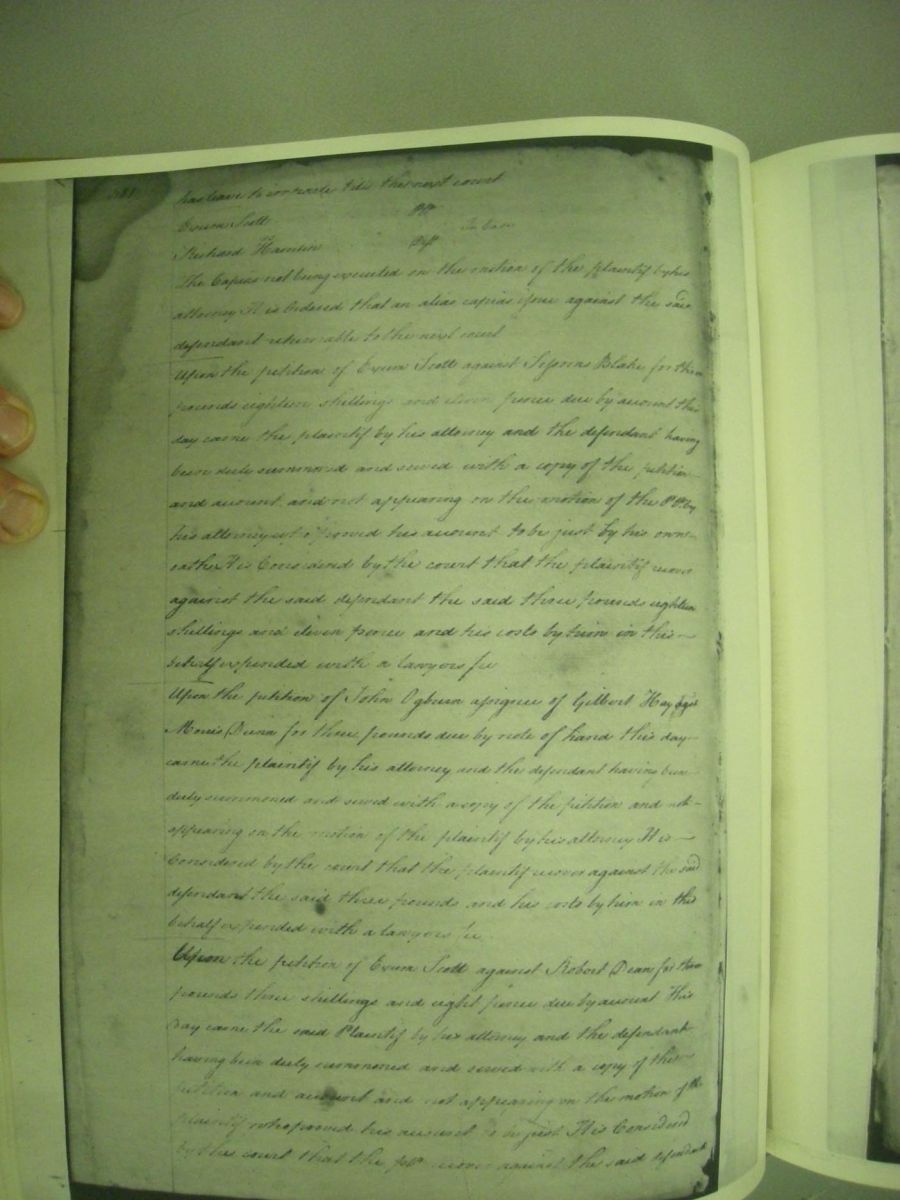 has leave to imparle till the next court
Exum Scott Plt
In Case
Richard Hamlin Deft
The Capias not being executed on the motion of the plaintif by his
attorney It is Ordered that an alias capias issue against the said
defendant returnable to the next court
Upon the petition of Exum Scott against Blake for three
pounds eighteen shillings and eleven pence due by account this
day came the plaintif by his attorney and the defendant having
been duly summoned and served with a copy of the petition
and account and not appearing on the motion of the Plt by
his attorney who proved his account to be just by his own
oath It is Considered by the court that the plaintif recover
against the said defendant the said three pounds eighteen
shillings and eleven pence and his costs by him in this
behalf expended with a lawyers fee
Upon the petition of John Ogburn assignee of Gilbert Hay agst
Morris Dunn for three pounds due by note of hand this day
came the plaintif by his attorney and the defendant having been
duly summoned and served with a copy of the petition and not
appearing on the motion of the plaintif by his attorney It is
Considered by the court that the plaintif recover against the said
defendant the said three pounds and his costs by him in this
behalf expended with a lawyers fee
Upon the petition of Exum Scott against Robert Dean for three
pounds three shillings and eight pence due by account This
day came the said Plaintif by his attorney and the defendant
having been duly summoned and served with a copy of the
petition and account and not appearing on the motion of the
plaintif who proved his account to be just It is Considered
by the court that the plt recover against the said defendant